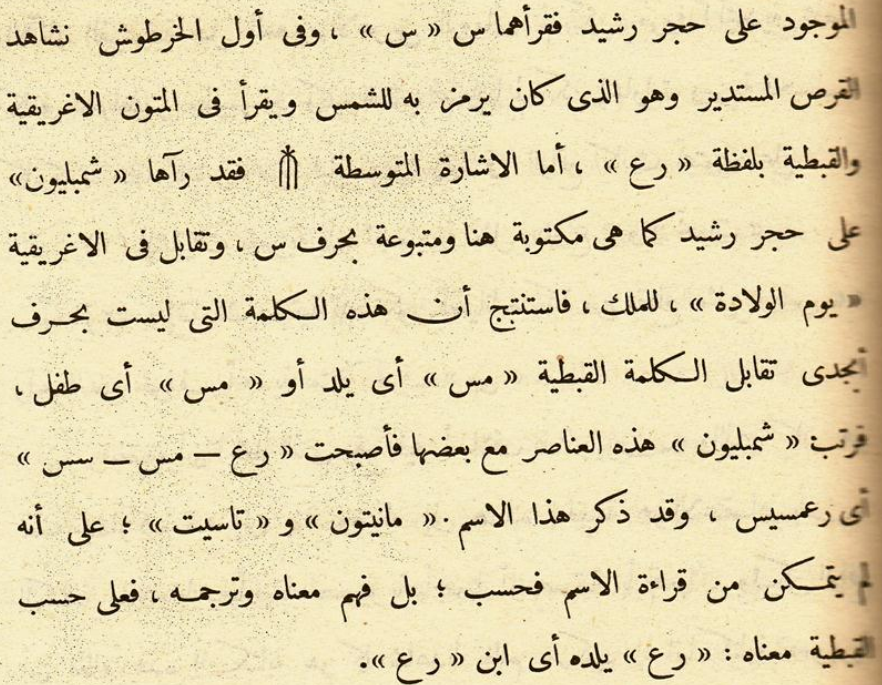 الموجود على حجر رشيد فقرأهما س « س » ، وفى أول الخرطوش نشاهد
القرص المستدير وهو الذى كان يرمز به للشمس ويقرأ فى المتون الاغريقية
والقبطية بلفظة « رع » ، أما الاشارة المتوسطة 𓄟 فقد رآها « شمبليون»
على حجر رشيد كما هى مكتوبة هنا ومتبوعة بحرف س ، وتقابل فى الاغريقية
« يوم الولادة » ، للملك ، فاستنتج أن هذه الكلمة التى ليست بحرف
أبجدى تقابل الكلمة القبطية « مس » أى يلد أو « مس » أى طفل ،
فرتب: « شمبليون » هذه العناصر مع بعضها فأصبحت « رع — مس — سس »
أى رعمسيس ، وقد ذكر هذا الاسم . « مانيتون » و « تاسيت » ؛ على أنه
لم يتمكن من قراءة الاسم فحسب ؛ بل فهم معناه وترجمه ، فعلى حسب
القبطية معناه : « رع » يلده أى ابن « رع ».